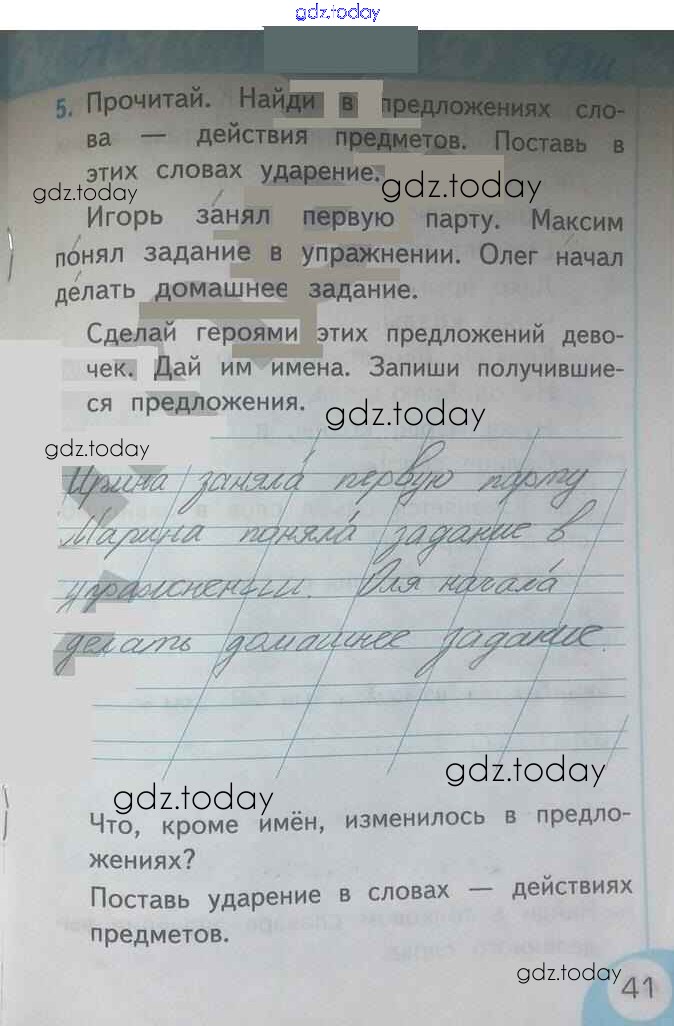 gdz.today
5. Прочитай. Найди в предложениях сло-
ва — действия предметов. Поставь в
этих словах ударение.
gdz.today
gdz.today
Игорь за́нял первую парту. Максим
по́нял задание в упражнении. Олег на́чал
де́лать домашнее задание.
Сделай героями этих предложений дево-
чек. Дай им имена. Запиши получившие-
ся предложения.
gdz.today
gdz.today
Ирина заняла́ первую парту
Марина поняла́ задание в
упражнении. Оля начала́
делать домашнее задание.
gdz.today
gdz.today
Что, кроме имён, изменилось в предло-
жениях?
Поставь ударение в словах — действиях
предметов.
gdz.today
41